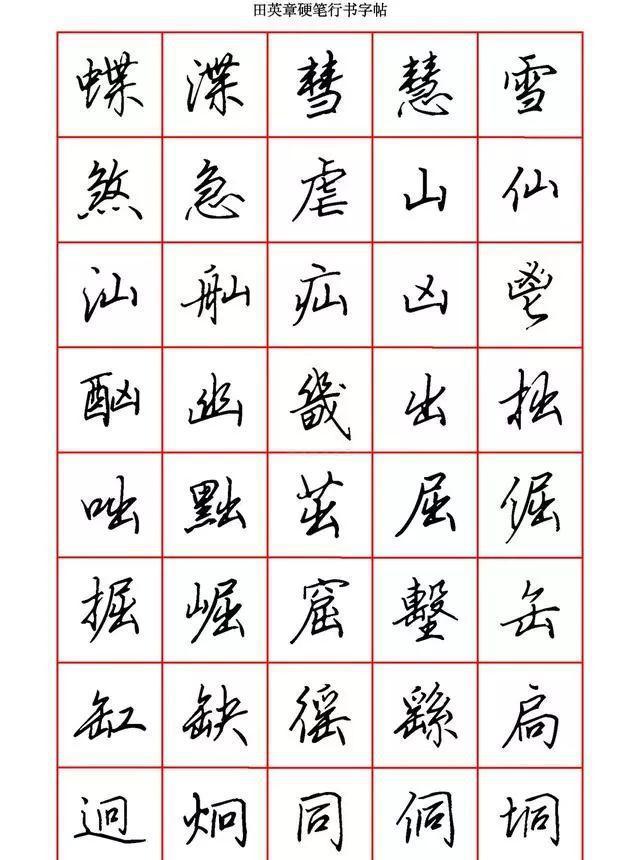 田英章硬笔行书字帖
蝶 渫 彗 慧 雪
煞 急 虐 山 仙
汕 舢 疝 凶 鬯
酗 幽 畿 出 拙
咄 黜 茁 屈 倔
掘 崛 窟 墼 缶
缸 缺 徭 繇 扃
迥 炯 同 侗 垌